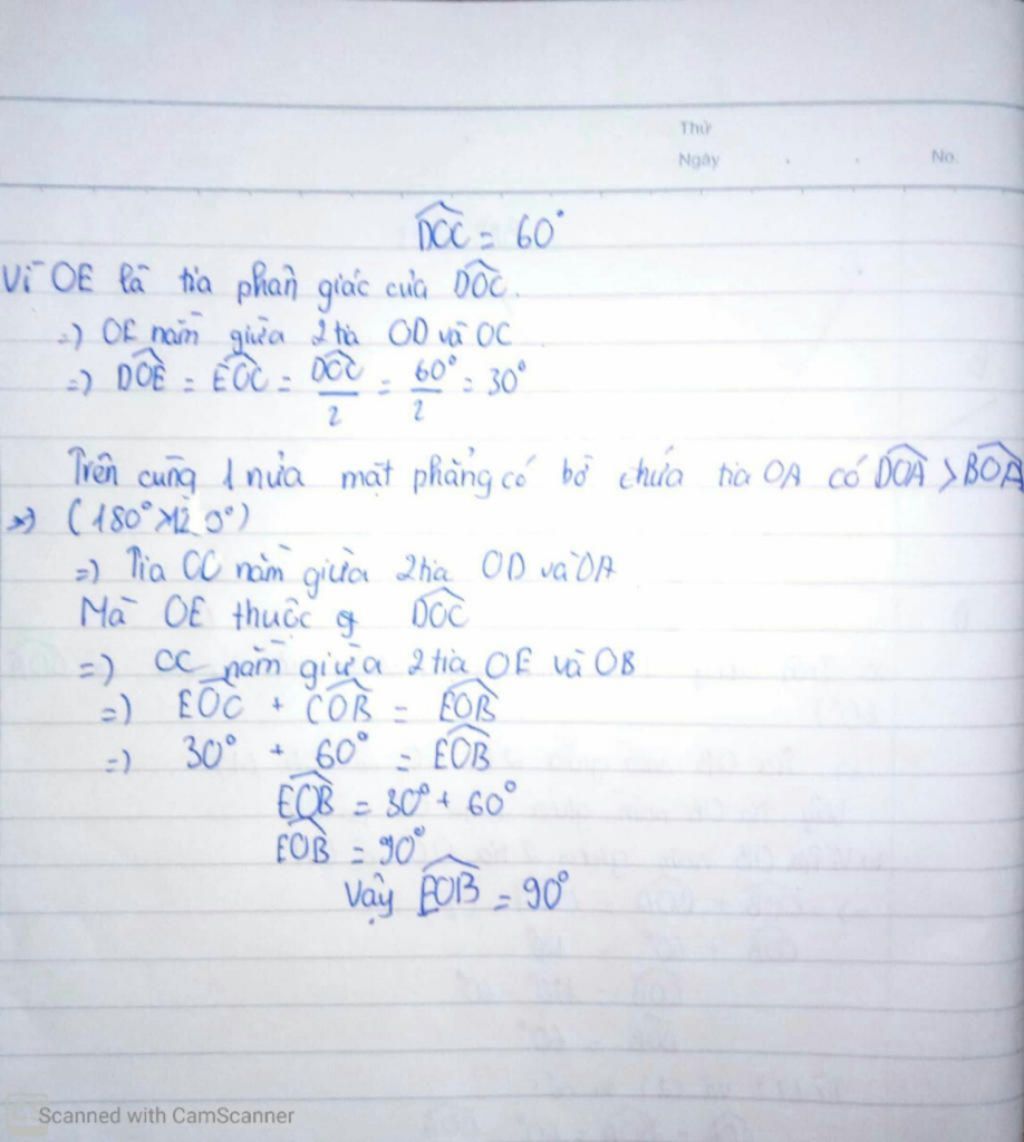 Thứ
Ngày . . No.
DOC = 60°
Vì OE là tia phân giác của DOC.
=) OE nằm giữa 2 tia OD và OC
=) DOE = EOC = DOC/2 = 60°/2 = 30°
Trên cùng 1 nửa mặt phẳng có bờ chứa tia OA có DOA > BOA
=) (180° > 120°)
=) Tia OC nằm giữa 2 tia OD và OA
Mà OE thuộc DOC
=) OC nằm giữa 2 tia OE và OB
=) EOC + COB = EOB
=) 30° + 60° = EOB
EOB = 30° + 60°
EOB = 90°
Vậy EOB = 90°
Scanned with CamScanner